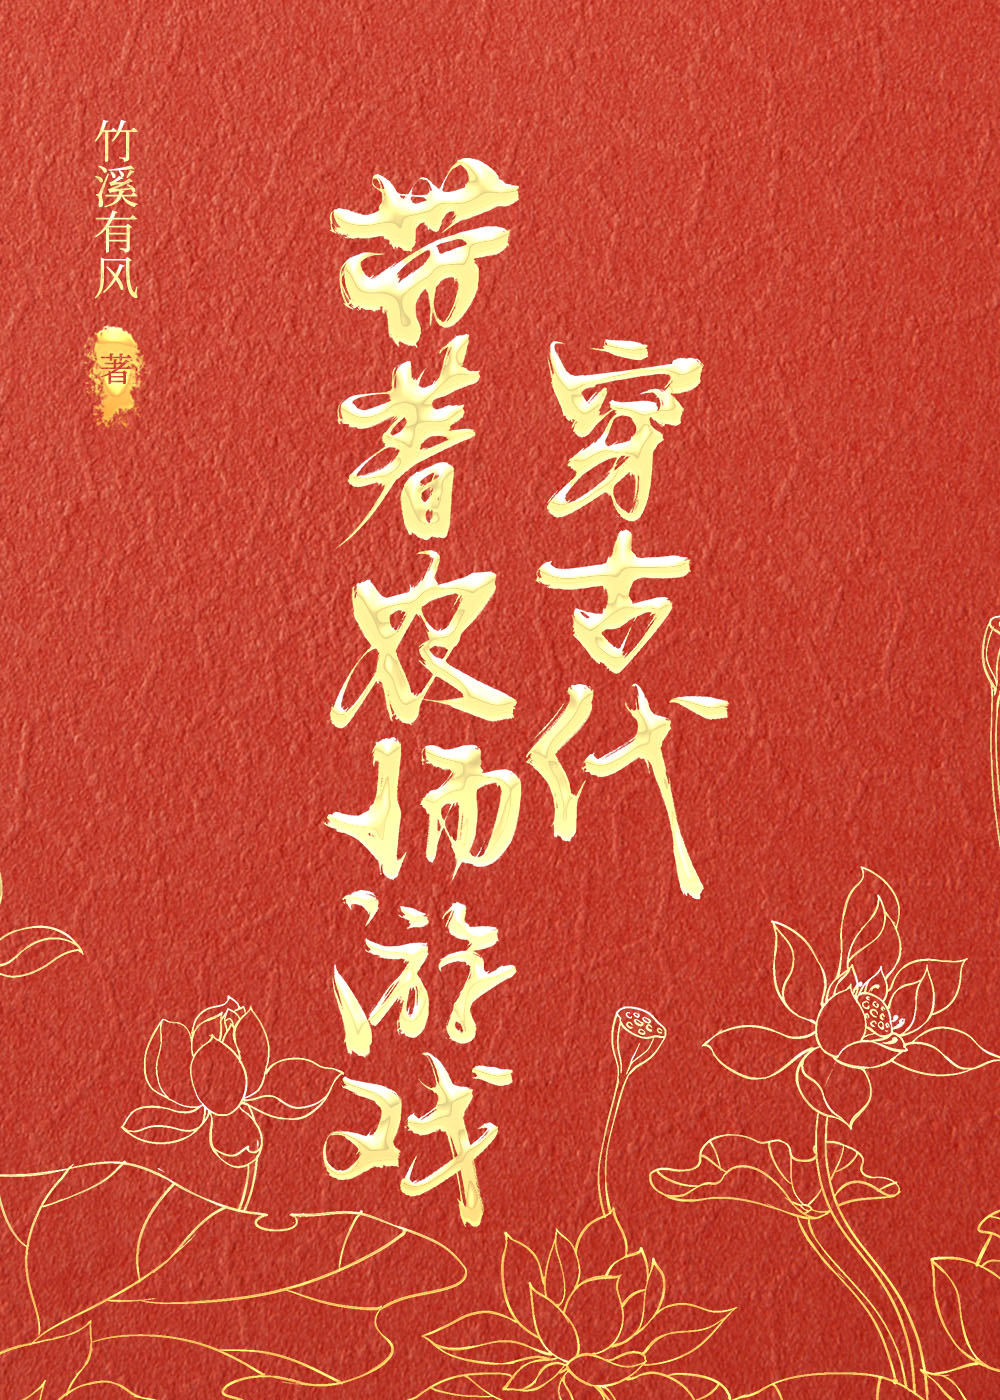 穿古代
带着农场游戏
竹溪有风
著